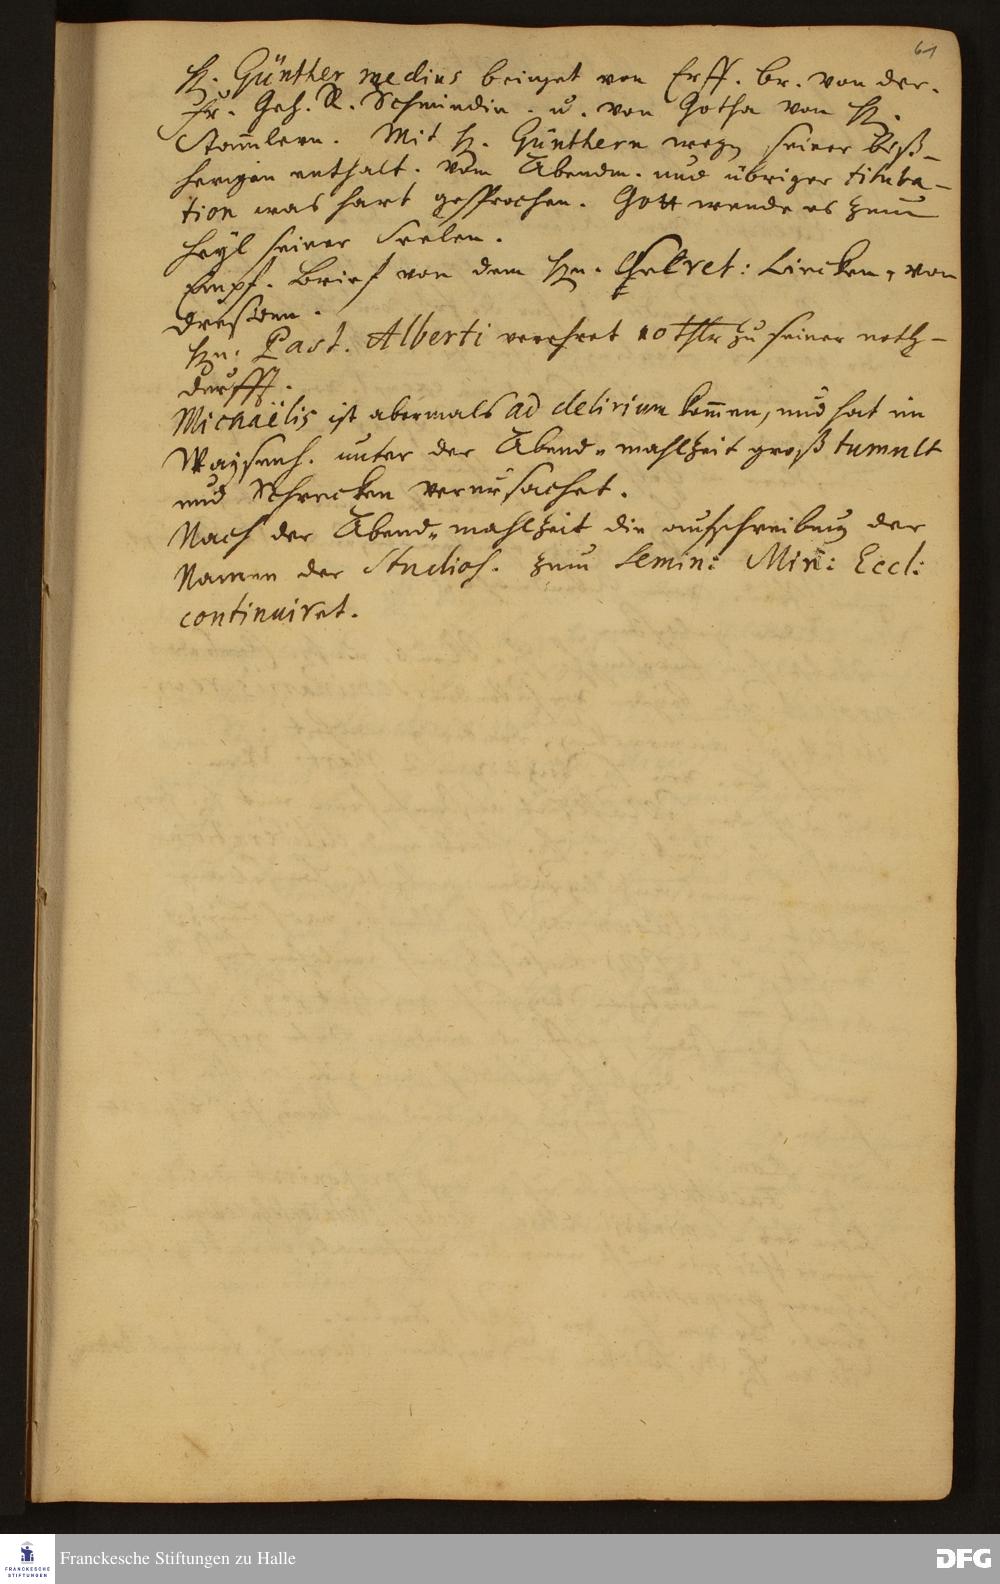 61
H. Günther medius bringet von Erff. br. von der
Fr. Geh. R. Schmiedin. u. von Gotha von H.
Stammlern. Mit H. Günthern wegen seiner biß-
herigen enthalt. vom Abendm. und übriger tituba-
tion was hart gesprochen. Gott wende es zum
Heyl seiner Seelen.
Empf. Brief von dem Hn. Sekret: Lincken, von
Dreßden.
Hn. Past. Alberti verehret 10 thlr zu seiner noth-
durfft.
Michaëlis ist abermals ad delirium kommen, und hat im
Waysenh. unter der Abend-mahlzeit groß tumult
und Schrecken verursachet.
Nach der Abend-mahlzeit die aufschreibung der
Namen der Studios. zum Semin: Min: Eccl:
continuiret.
Franckesche Stiftungen zu Halle
FRANCKESCHE STIFTUNGEN
DFG